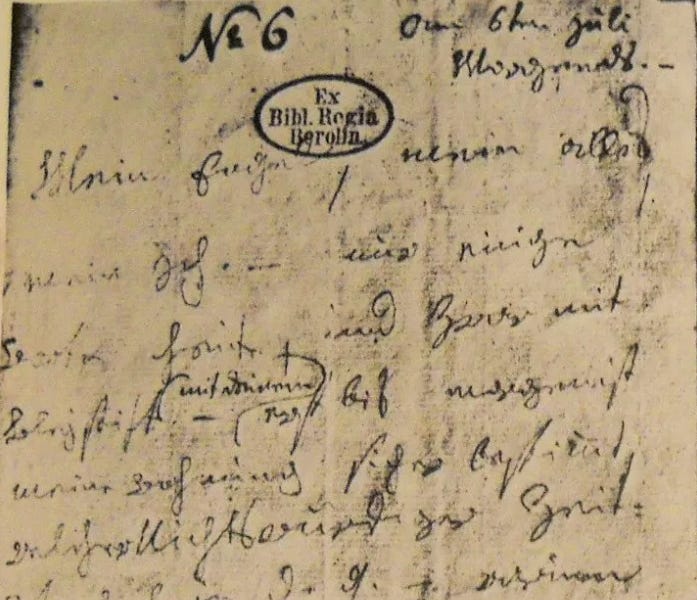 № 6
am 6ten Juli
Morgends. –
Ex
Bibl. Regia
Berolin.
Mein Engel, mein alles,
mein Ich. — nur einige
Worte heute, und zwar mit
Bleystift — (mit deinem) erst bis morgen ist
meine Wohnung sicher bestimmt,
welcher Nichtswürdiger Zeit=
d. g. –